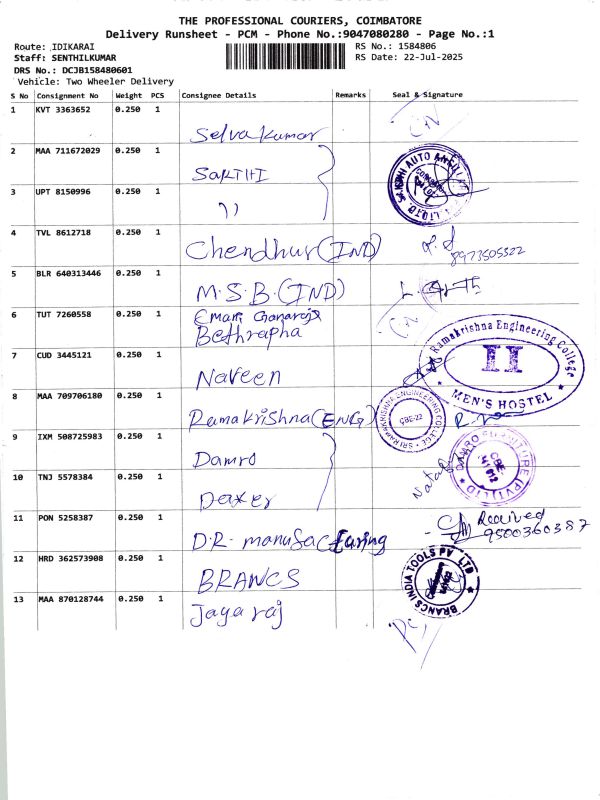 THE PROFESSIONAL COURIERS, COIMBATORE
Delivery Runsheet - PCM - Phone No.:9047080280 - Page No.:1
Route: IDIKARAI
RS No.: 1584806
Staff: SENTHILKUMAR
RS Date: 22-Jul-2025
DRS No.: DCJB158480601
Vehicle: Two Wheeler Delivery
S No Consignment No Weight PCS Consignee Details Remarks Seal & Signature
1 KVT 3363652 0.250 1 Selva Kumar
2 MAA 711672029 0.250 1 SARTHI
3 UPT 8150996 0.250 1 ''
4 TVL 8612718 0.250 1 Chendhur (IND) 8973505322
5 BLR 640313446 0.250 1 M.S.B. (IND)
6 TUT 7260558 0.250 1 Bethrapha
Ramakrishna Engineering College
II
MEN'S HOSTEL
7 CUD 3445121 0.250 1 Naveen
8 MAA 709706180 0.250 1 Ramakrishna (ENG)
SRI RAMAKRISHNA ENGINEERING COLLEGE
CBE-22
9 IXM 508725983 0.250 1 Damro
DAMRO FURNITURE (PVT) LTD
CBE
641 012
10 TNJ 5578384 0.250 1 Daxer
11 PON 5258387 0.250 1 D.R. manufacturing Received
9500360387
12 HRD 362573908 0.250 1 BRANCS
BRANCS INDIA TOOLS PV LTD
13 MAA 870128744 0.250 1 Jayaraj